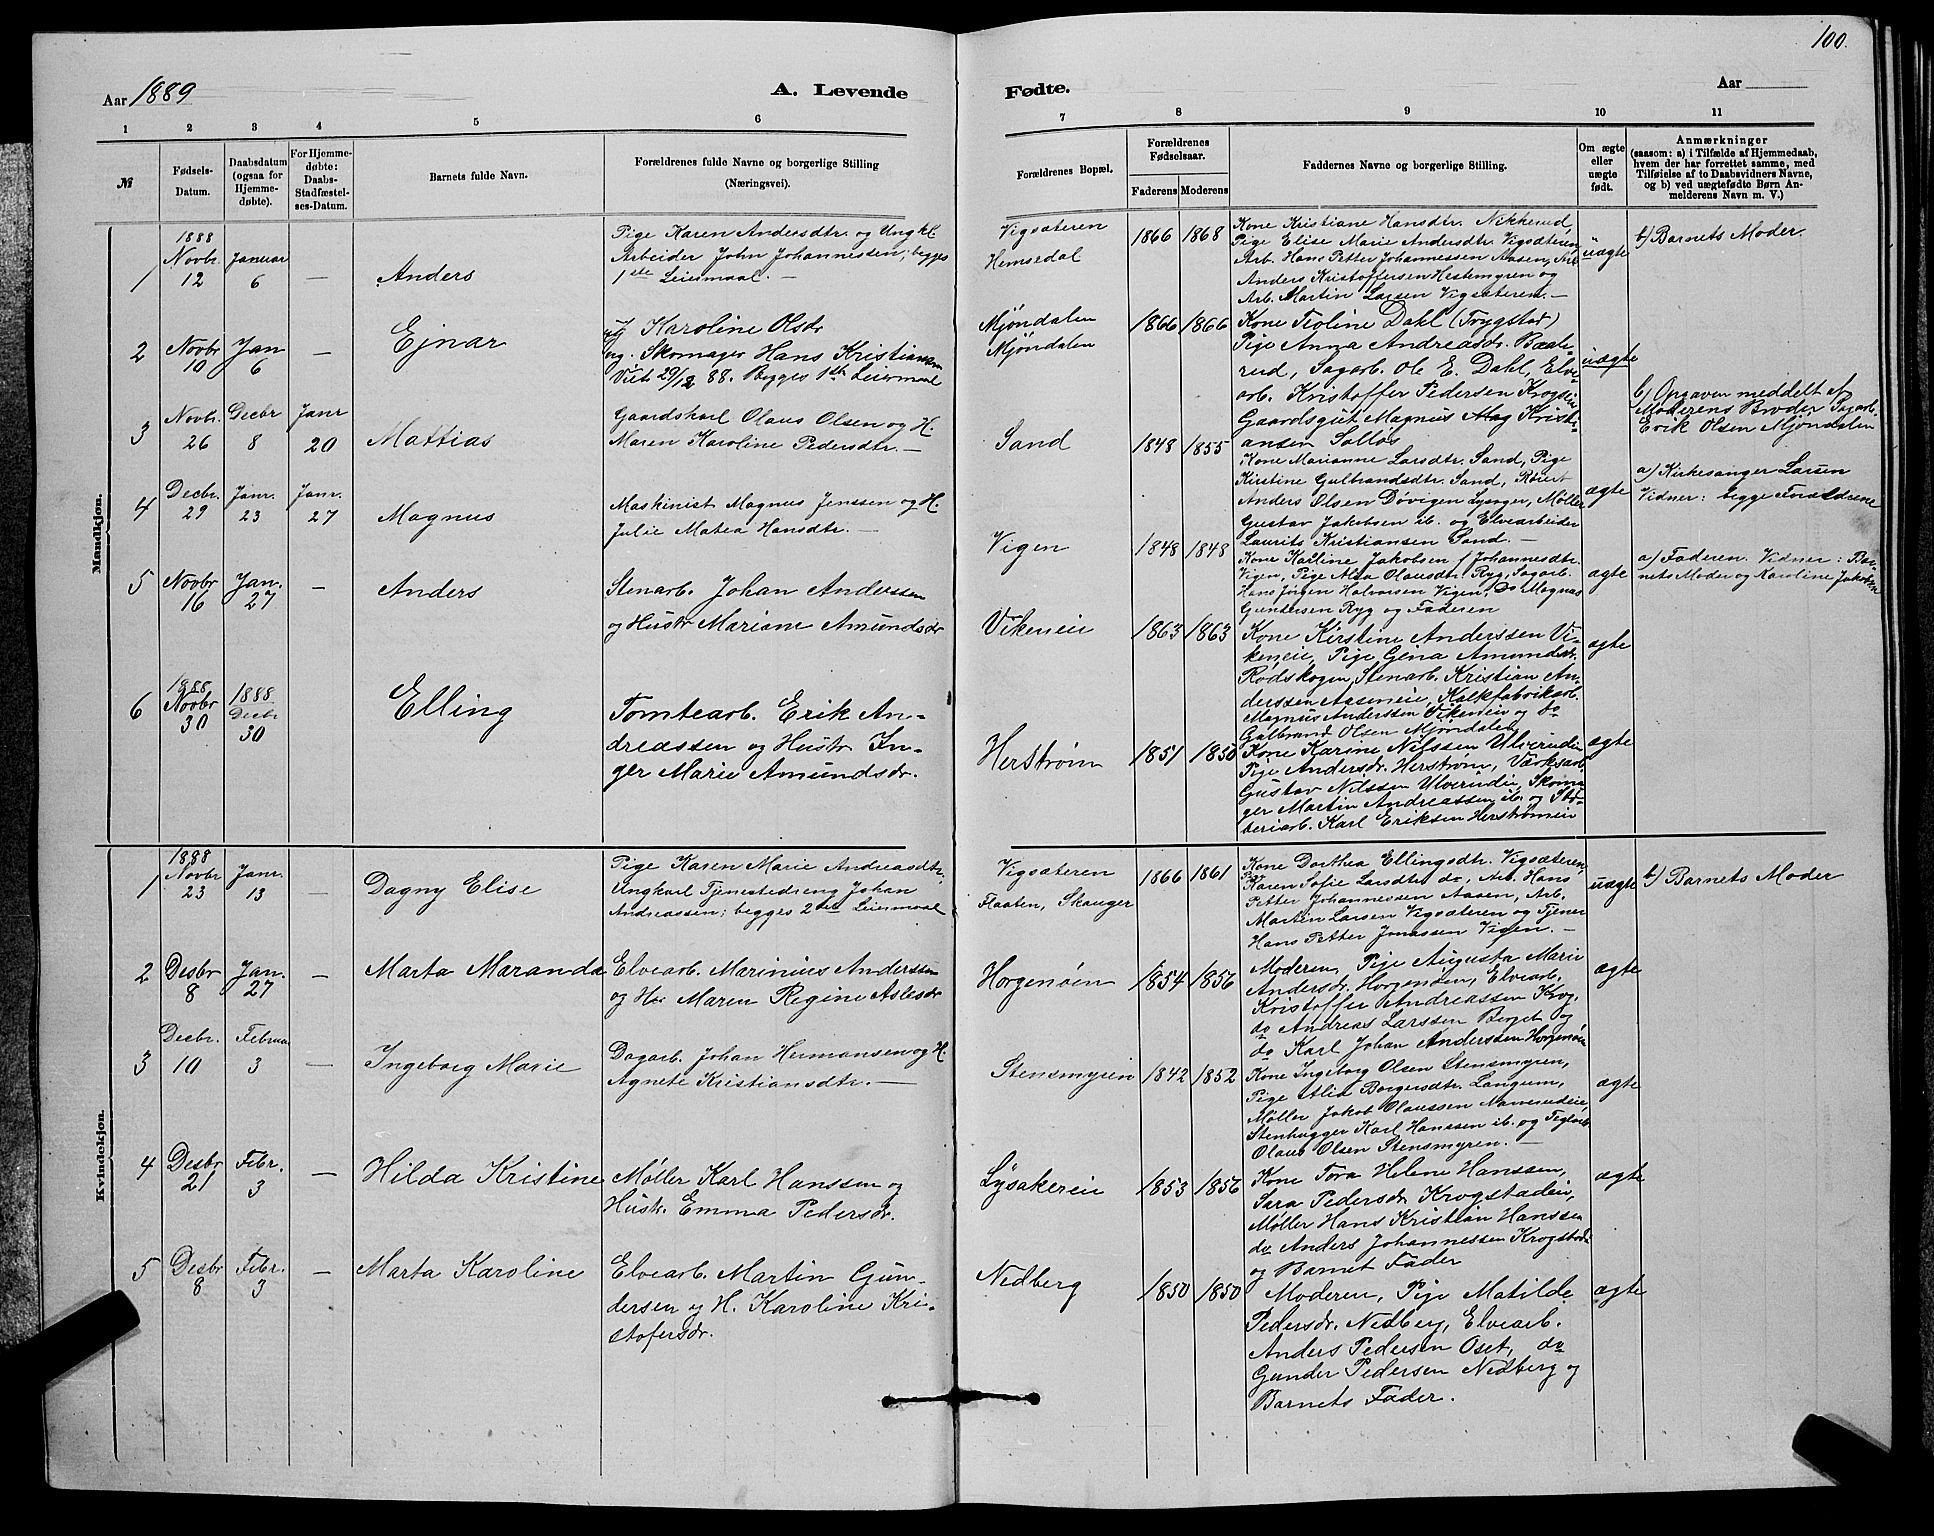 100.
Aar 1889
A. Levende
Fødte.
Aar
1 2 3 4 5 6
7 8 9 10 11
№
Fødsels-
Datum.
Daabsdatum
(ogsaa for
Hjemme-
døbte).
For Hjemme-
døbte:
Daabs-
Stadfæstel-
ses-Datum.
Barnets fulde Navn.
Forældrenes fulde Navne og borgerlige Stilling
(Næringsvei).
Forældrenes Bopæl.
Forældrenes
Fødselsaar.
Faderens Moderens
Faddernes Navne og borgerlige Stilling.
Om ægte
eller
uægte
født.
Anmærkninger
(saasom: a) i Tilfælde af Hjemmedaab,
hvem der har forrettet samme, med
Tilføielse af to Daabsvidners Navne,
og b) ved uægtefødte Børn An-
melderens Navn m. V.)
Mandkjøn.
1
1888
Novbr.
12
Januar
6
—
Anders
Pige Karen Andersdtr. og Ungkl.
Arbeider John Johannessen; begges
1ste Leiermaal. —
Vigsæteren
Hemsedal
1866 1868
Kone Kristiane Hansdtr. Nikkerud,
Pige Elise Marie Andersdtr. Vigsæteren,
Arb. Hans Petter Johannessen Aasen, Arb.
Anders Kristoffersen Hestemyren og
Arb. Martin Larsen Vigsæteren. —
uægte
b) Barnets Moder.
2
Novbr
10
Jan
6
—
Ejnar
Karoline Olsdr
Skomager Hans Kristiansen
Viet 29/12 88. Begges 1ste Leiermaal
Mjøndalen
Mjøndalen
1866 1866
Kone Teoline Dahl (Trygstad)
Pige Anna Andreasdr. Baale-
rud, Sagarb. Ole E. Dahl, Elve-
arb. Kristoffer Pedersen Krogs
Gaardsgut Magnus Mag Kristi-
ansen Solløs
uægte
b) Opgaven meddelt af
Moderens Broder Sagarb.
Erik Olsen Mjøndalen
3
Novbr.
26
Decbr
8
Janr
20
Mattias
Gaardskarl Olaus Olsen og H.
Maren Karoline Pedersdtr. —
Sand
1848 1855
Kone Marianne Larsdtr. Sand, Pige
Kirstine Gulbrandsdtr. Sand,
Anders Olsen Døvigen Møller
Gustav Jakobsen ib. og Elvearbeider
Laurits Kristiansen Sand. —
ægte
a) Kirkesanger Larsen
Vidner: begge Forældrene
4
Decbr.
29
Janr.
23
Janr.
27
Magnus
Maskinist Magnus Jenssen og H.
Julie Matea Hansdtr. —
Vigen
1848 1848
Kone Karline Jakobsen / Johannesdtr.
Vigen, Pige Olausdtr. Ryg, Sagarb.
Hans Jørgen Halvorsen Vigen, Do Magnus
Gundersen Ryg og Faderen
ægte
a) Faderen. Vidner: Bar-
nets Moder og Karoline Jakobsen
5
Novbr
16
Jan.
27
—
Anders
Stenarb. Johan Anderssen
og Hustr Mariane Amundsdr
Vikeneie
1863 1863
Kone Kirstine Anderssen Vi-
keneie, Pige Gina Amundsdr.
Rødskogen, Stenarb. Kristian An-
derssen Aaseneie, Kalkfabrikarb.
Magnus Anderssen Vikeneie og do
Gulbrand Olsen Mjøndalen
ægte
6
1888
Novbr
30
1888
Decbr
30
Elling
Tomtearb. Erik An-
dreassen og Hustr. In-
ger Marie Amundsdr.
Herstrøm
1851 1850
Kone Karine Nilssen Ulverudeie
Pige Andersdr. Herstrøm, Værksarb.
Gustav Nilssen Ulverudeie, Skoma-
ger Martin Andreassen ib. og
beriarb. Karl Eriksen Herstrømeie
ægte
Kvindekjøn.
1
1888
Novbr
23
Janr.
13
—
Dagny Elise
Pige Karen Marie Andreasdtr.
Ungkarl Tjenestedreng Johan
Andreassen; begges 2det Leiermaal
Vigsæteren
Flaaten, Skauger
1866 1861
Kone Dorthea Ellingsdtr. Vigsæteren,
Karen Sofie Larsdtr. do, Arb. Hans
Petter Johannessen Aasen, Arb.
Martin Larsen Vigsæteren og Tjener
Hans Petter Jonassen Vigen. —
uægte
b) Barnets Moder
2
Desbr
8
Jan.
27
—
Marta Maranda
Elvearb. Marinius Anderssen
og Hu Maren Regine Aslesdr
Horgenøen
1854 1856
Moderen, Pige Augusta Marie
Andersdr. Horgenøen, Elvearb.
Kristoffer Andreassen Krog.
do Andreas Larssen Berget og
do Karl Johan Anderssen Horgenøen
ægte
3
Decbr.
10
Februar
3
—
Ingeborg Marie
Dagarb. Johan Hermansen og H.
Agnete Kristiansdtr. —
Stensmyren
1842 1852
Kone Ingeborg Olsen Stensmyren,
Pige Borgersdtr. Langum,
Møller Jakob Olaussen Narverudeie,
Stenhugger Karl Hanssen ib. og Teglarb.
Olaus Olsen Stensmyren. —
ægte
4
Desbr
21
Febr.
3
—
Hilda Kristine
Møller Karl Hanssen og
Hustr. Emma Pedersdr.
Lysakereie
1853 1856
Kone Tora Helene Hanssen,
Sara Pedersdr. Krogstadeie,
Møller Hans Kristian Hanssen
do Anders Johannessen Krogstade
og Barnet Fader
ægte
5
Desbr
8
Febr.
3
—
Marta Karoline
Elvearb. Martin Gun-
dersen og H. Karoline Kri-
stofersdr.
Nedberg
1850 1850
Moderen, Pige Matilde
Pedersdr. Nedberg, Elvearb.
Anders Pedersen Oset, do
Gunder Pedersen Nedberg og
Barnets Fader.
ægte